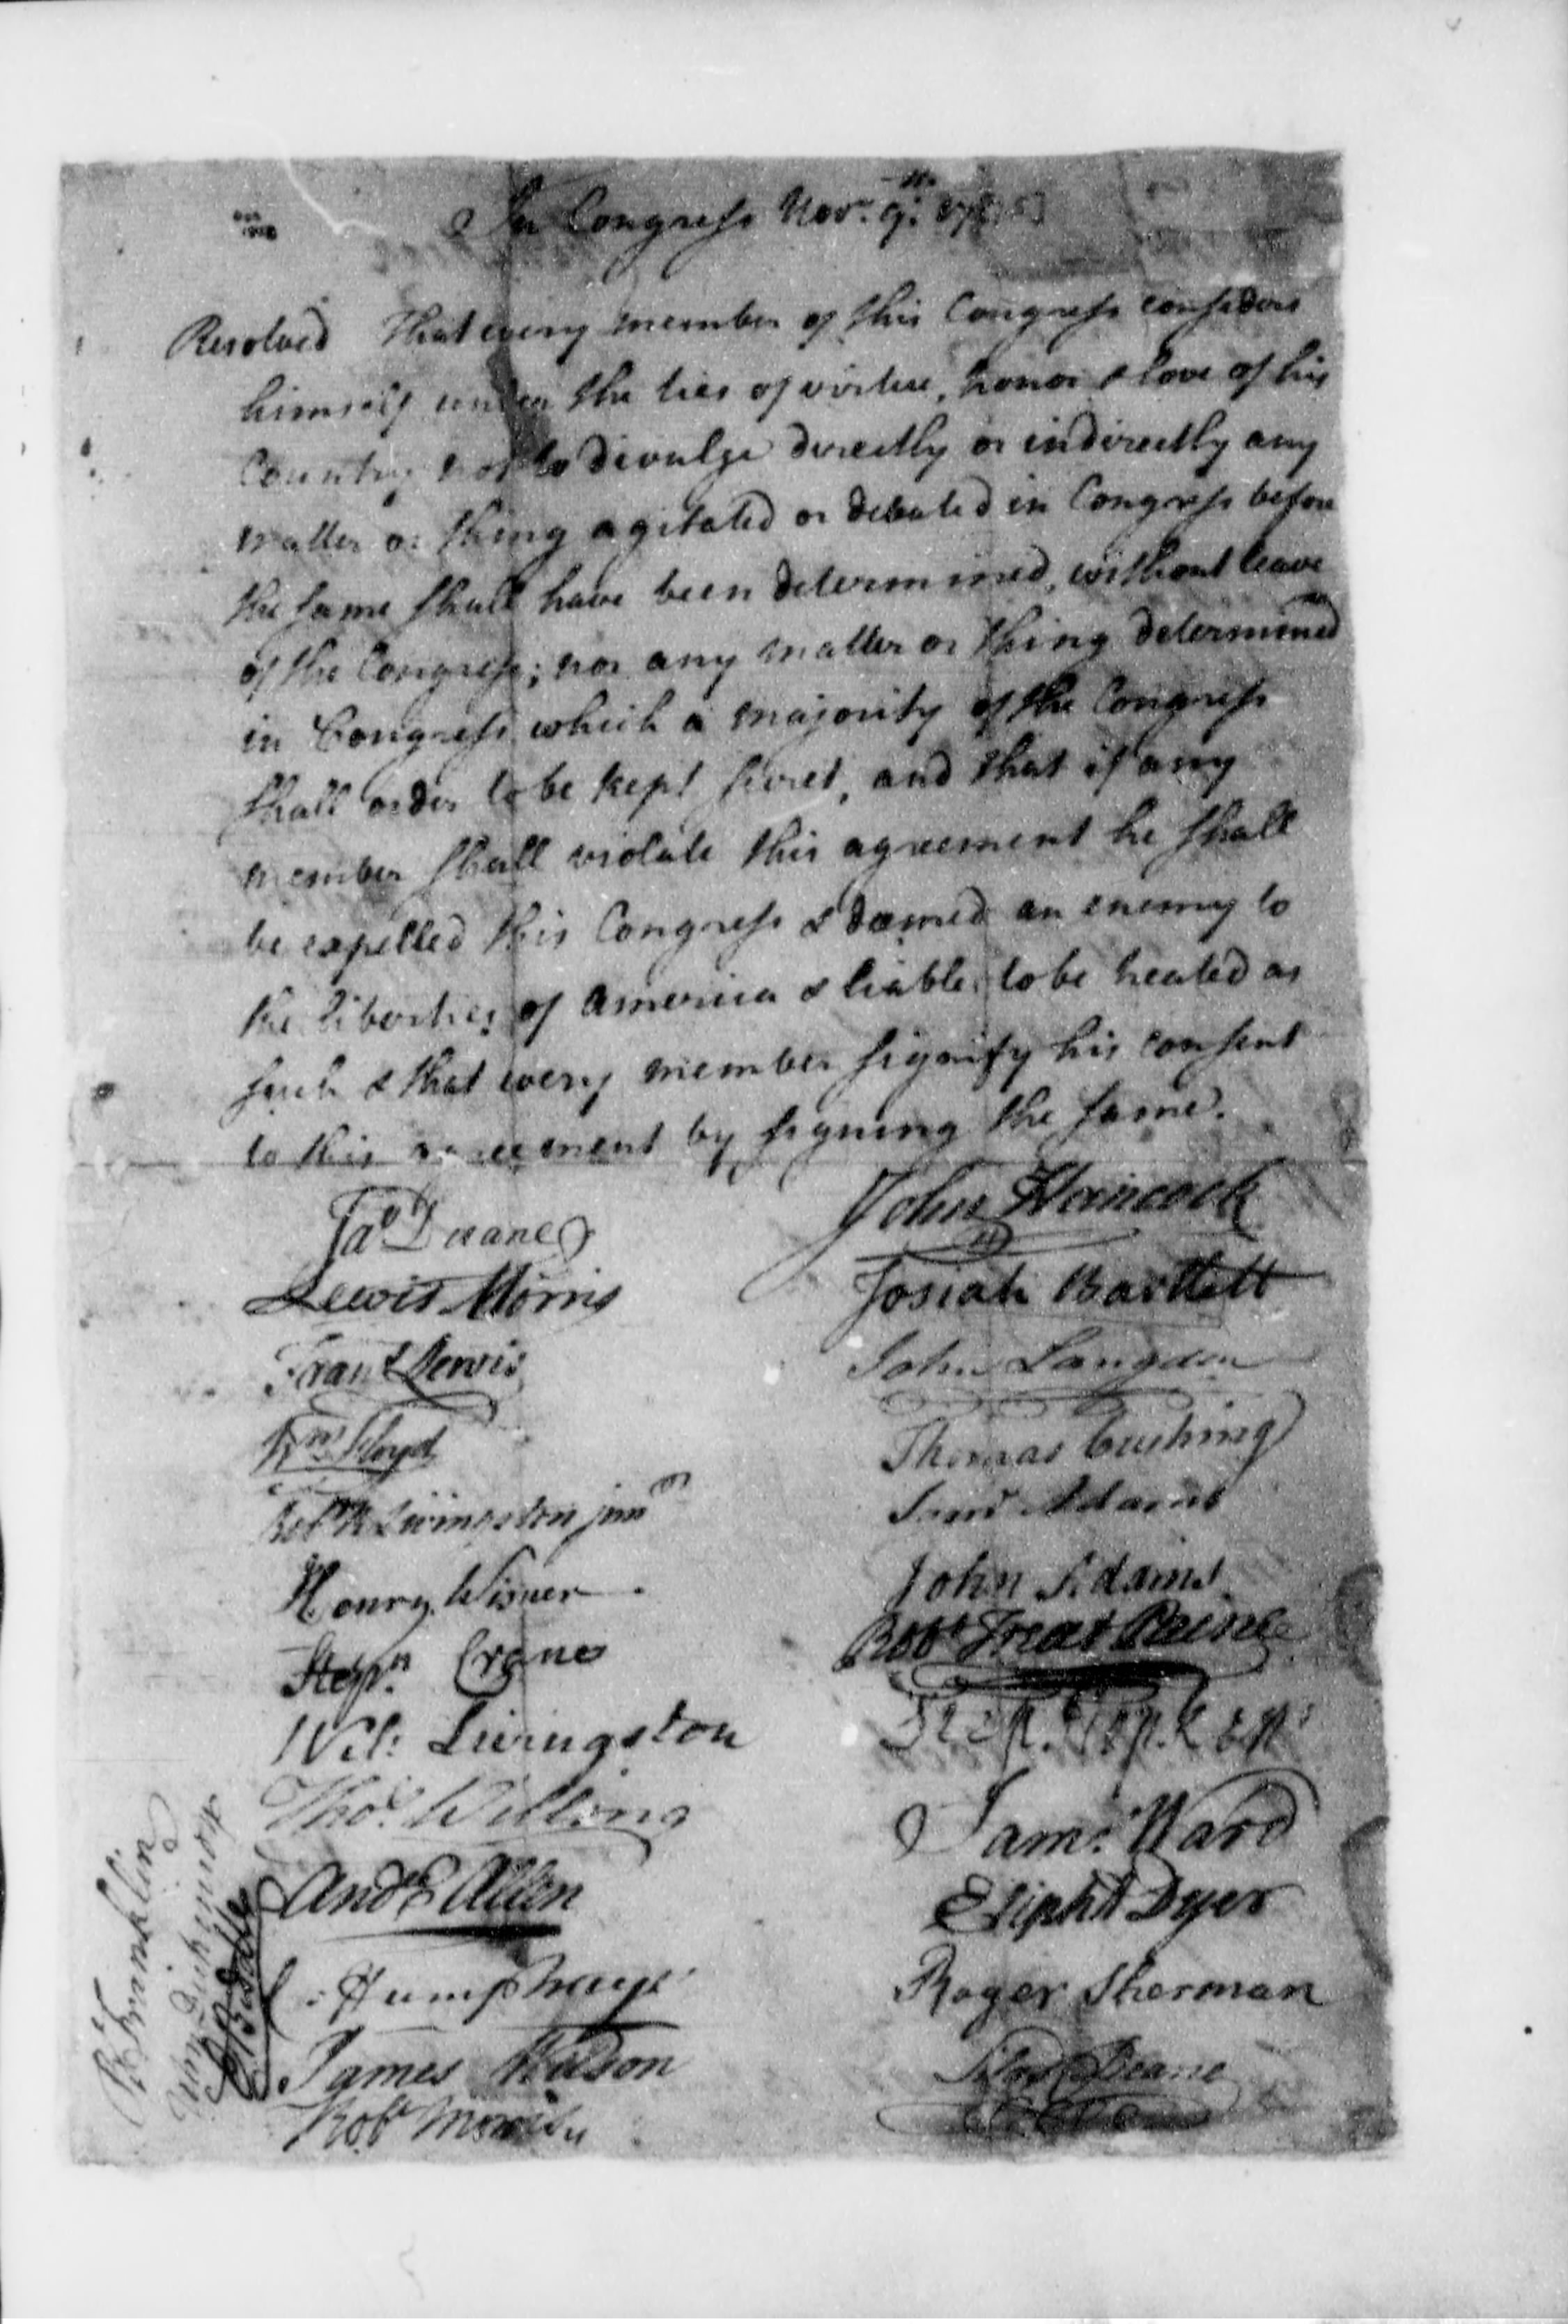 In Congress Novr. 9th. 1775
Resolved That every member of this Congress considers
himself under the ties of virtue, honor & love of his
Country not to divulge directly or indirectly any
matter or thing agitated or debated in Congress before
the same shall have been determined, without leave
of the Congress; nor any matter or thing determined
in Congress which a majority of the Congress
shall order to be kept secret, and that if any
member shall violate this agreement he shall
be expelled this Congress & deemed an enemy to
the liberties of America & liable to be treated as
such & that every member signify his consent
to this agreement by signing the same.
Jas Duane
Lewis Morris
Frans Lewis
Wm Floyd
Robt R Livingston junr
Henry Wisner
Stepn. Crane
Wil: Livingston
Thos. Willing
Andw Allen
C: Humphreys
James Wilson
Robt Morris
John Hancock
Josiah Bartlett
John Langdon
Thomas Cushing
Saml Adams
John Adams
Robt Treat Paine
Step. Hopkins
Sam: Ward
Elipht Dyer
Roger Sherman
Silas Deane
B Franklin
John Dickinson
E Biddle